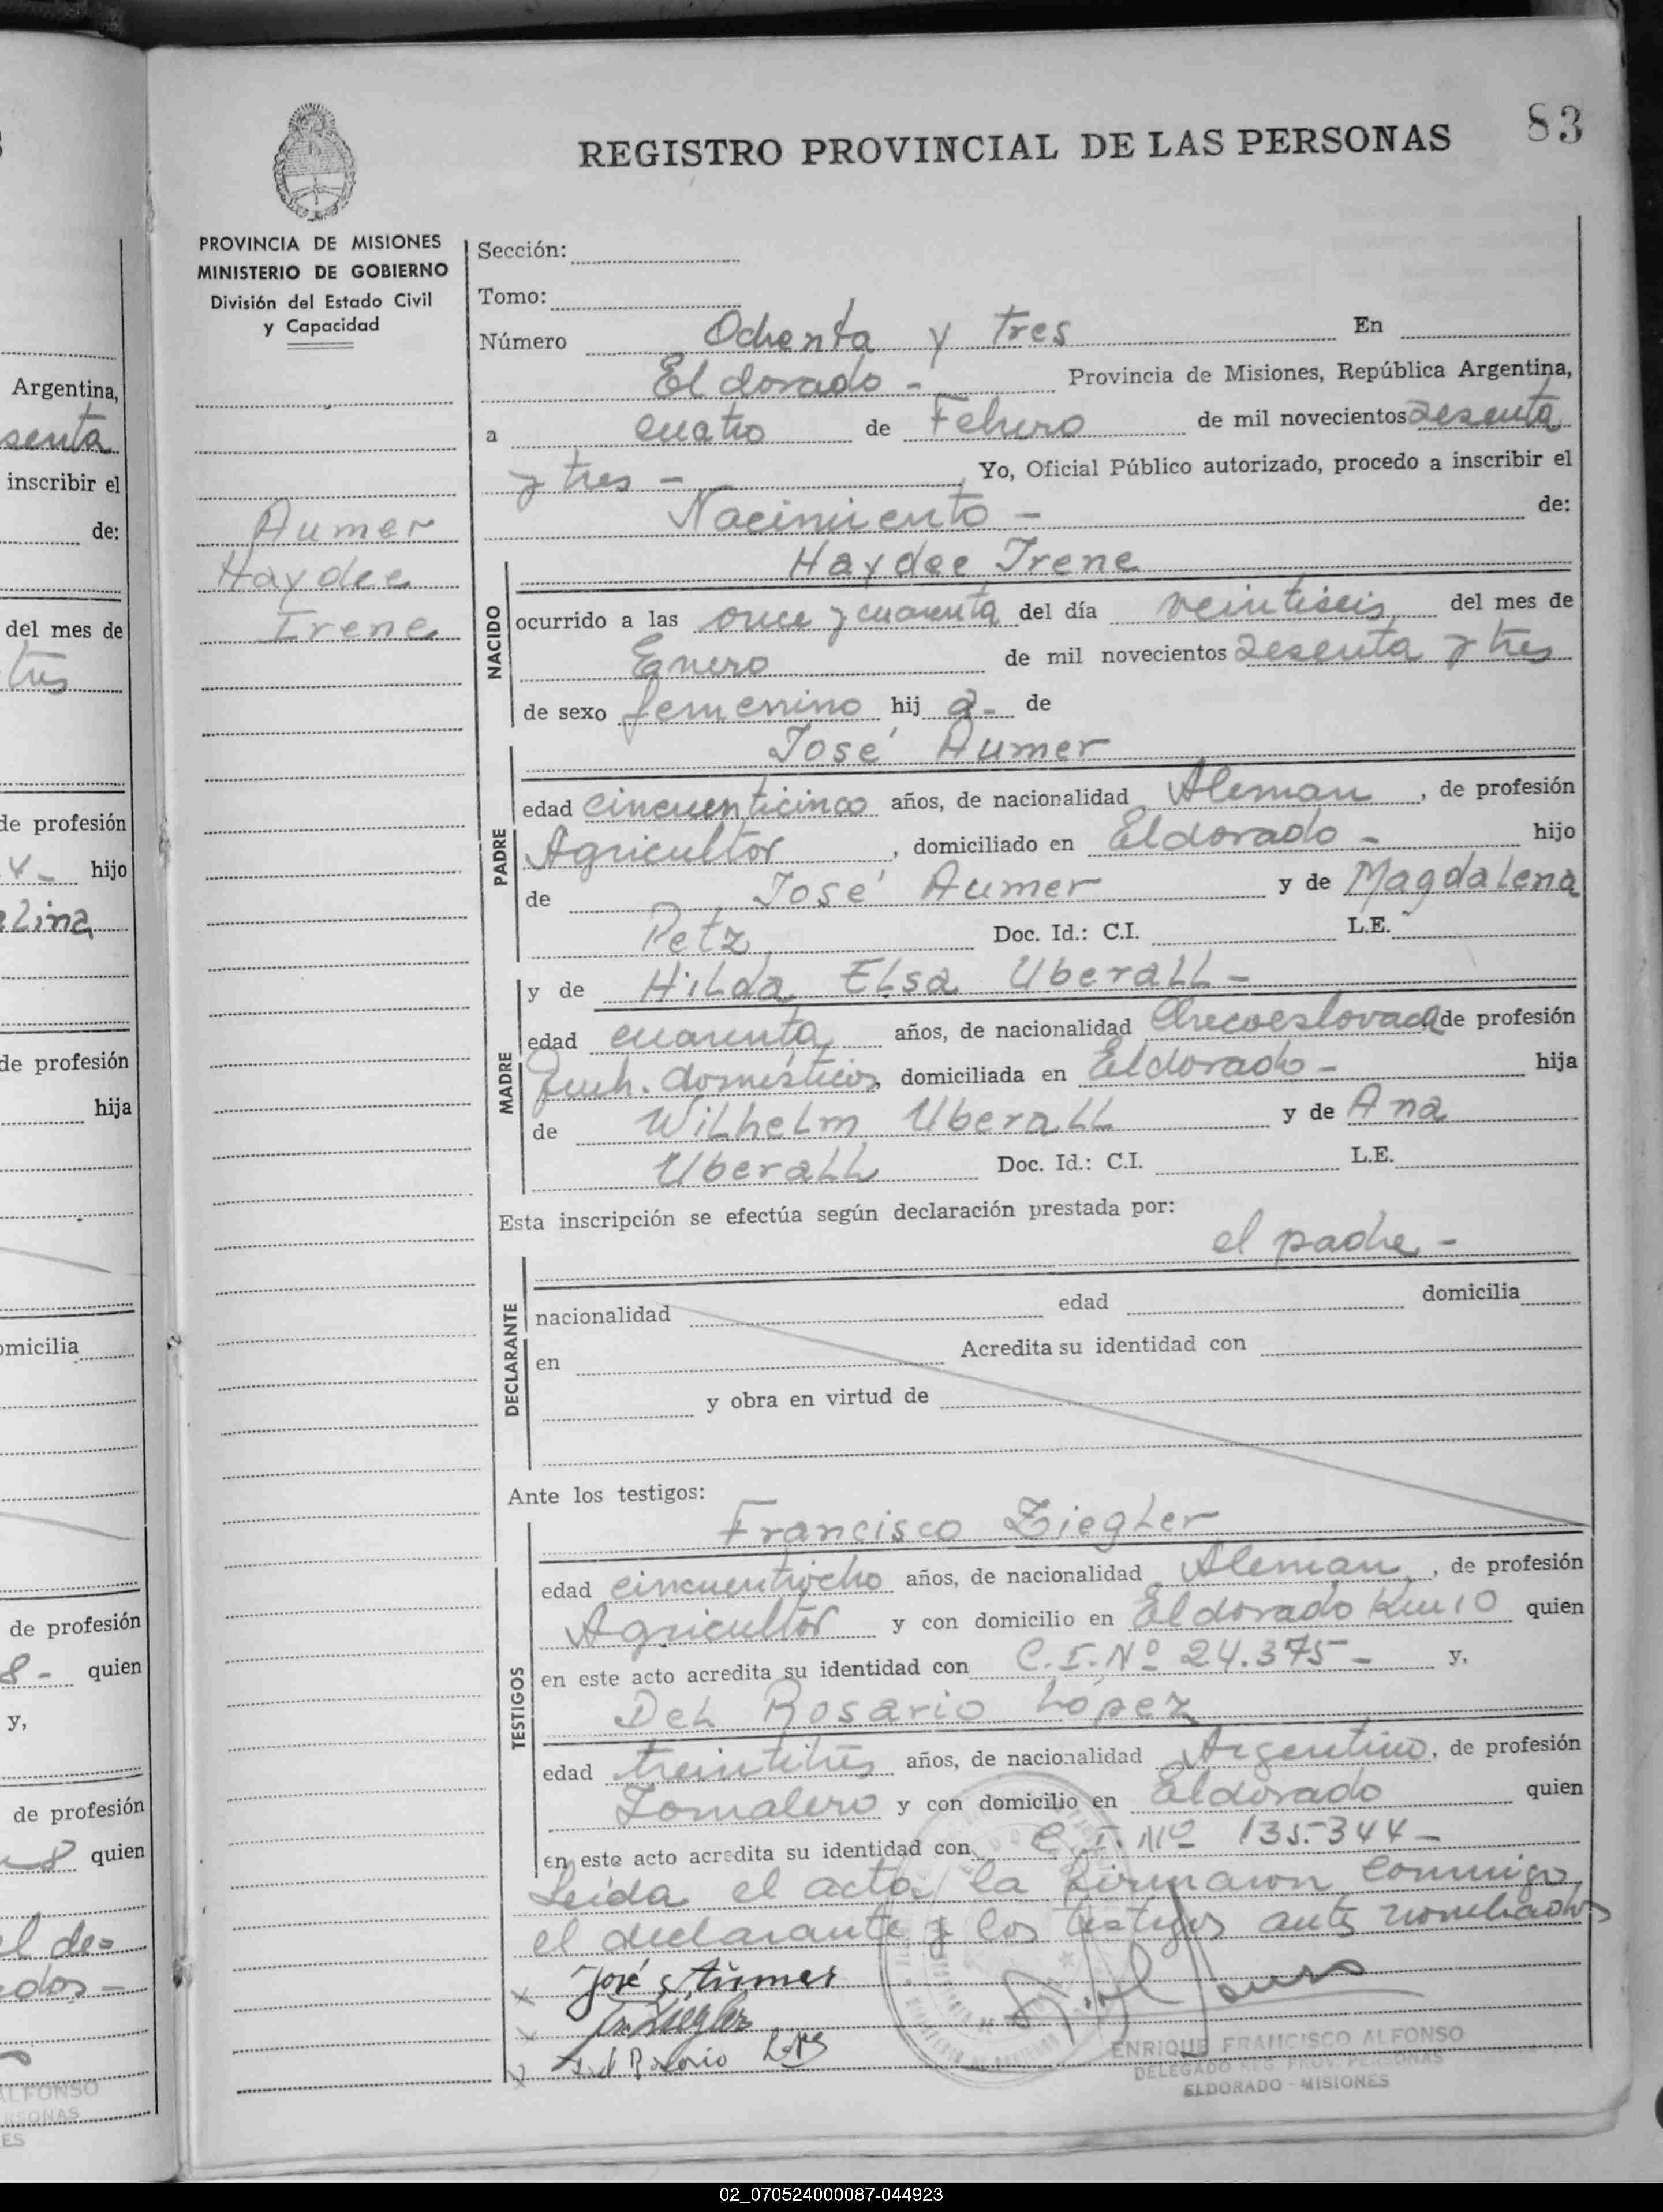 83
REGISTRO PROVINCIAL DE LAS PERSONAS
PROVINCIA DE MISIONES
MINISTERIO DE GOBIERNO
División del Estado Civil
y Capacidad
Aumer
Haydee
Irene
Sección:
Tomo:
Número Ochenta y tres En
Eldorado - Provincia de Misiones, República Argentina,
a cuatro de Febrero de mil novecientos sesenta
y tres - Yo, Oficial Público autorizado, procedo a inscribir el
Nacimiento - de:
Haydee Irene
NACIDO
ocurrido a las once y cuarenta del día veintiseis del mes de
Enero de mil novecientos sesenta y tres
de sexo femenino hij a - de
José Aumer
PADRE
edad cincuenticinco años, de nacionalidad Aleman, de profesión
Agricultor, domiciliado en Eldorado - hijo
de José Aumer y de Magdalena
Petz Doc. Id.: C.I. L.E.
MADRE
y de Hilda Elsa Uberall -
edad cuarenta años, de nacionalidad Checoeslovaca de profesión
Queh. domésticos, domiciliada en Eldorado - hija
de Wilhelm Uberall y de Ana
Uberall Doc. Id.: C.I. L.E.
Esta inscripción se efectúa según declaración prestada por:
el padre -
DECLARANTE
nacionalidad edad domicilia
en Acredita su identidad con
y obra en virtud de
Ante los testigos:
Francisco Ziegler
TESTIGOS
edad cincuentiocho años, de nacionalidad Aleman, de profesión
Agricultor y con domicilio en Eldorado Km 10 quien
en este acto acredita su identidad con C.I. Nº 24.375 - y,
Del Rosario López
edad treintitrés años, de nacionalidad Argentino, de profesión
Jornalero y con domicilio en Eldorado quien
en este acto acredita su identidad con C.I. Nº 135.344 -
Leída el acta, la firmaron conmigo
el declarante y los testigos antes nombrados
José Aumer
Fr. Ziegler
del Rosario
ENRIQUE FRANCISCO ALFONSO
DELEGADO REG. PROV. PERSONAS
ELDORADO - MISIONES
Argentina,
senta
inscribir el
de:
del mes de
tres
de profesión
hijo
de profesión
hija
omicilia
de profesión
8 - quien
y,
de profesión
8 quien
ALFONSO
ERSONAS
ES
02_070524000087-044923